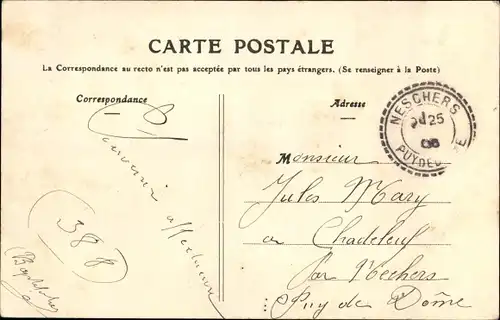 CARTE POSTALE
La Correspondance au recto n'est pas acceptée par tous les pays étrangers. (Se renseigner à la Poste)
Correspondance
Adresse
Souvenir affectueux
388
NESCHERS
25
PUY DE
Monsieur
Jules Mary
a Chadeleuf
par Nechers
Puy de Dôme